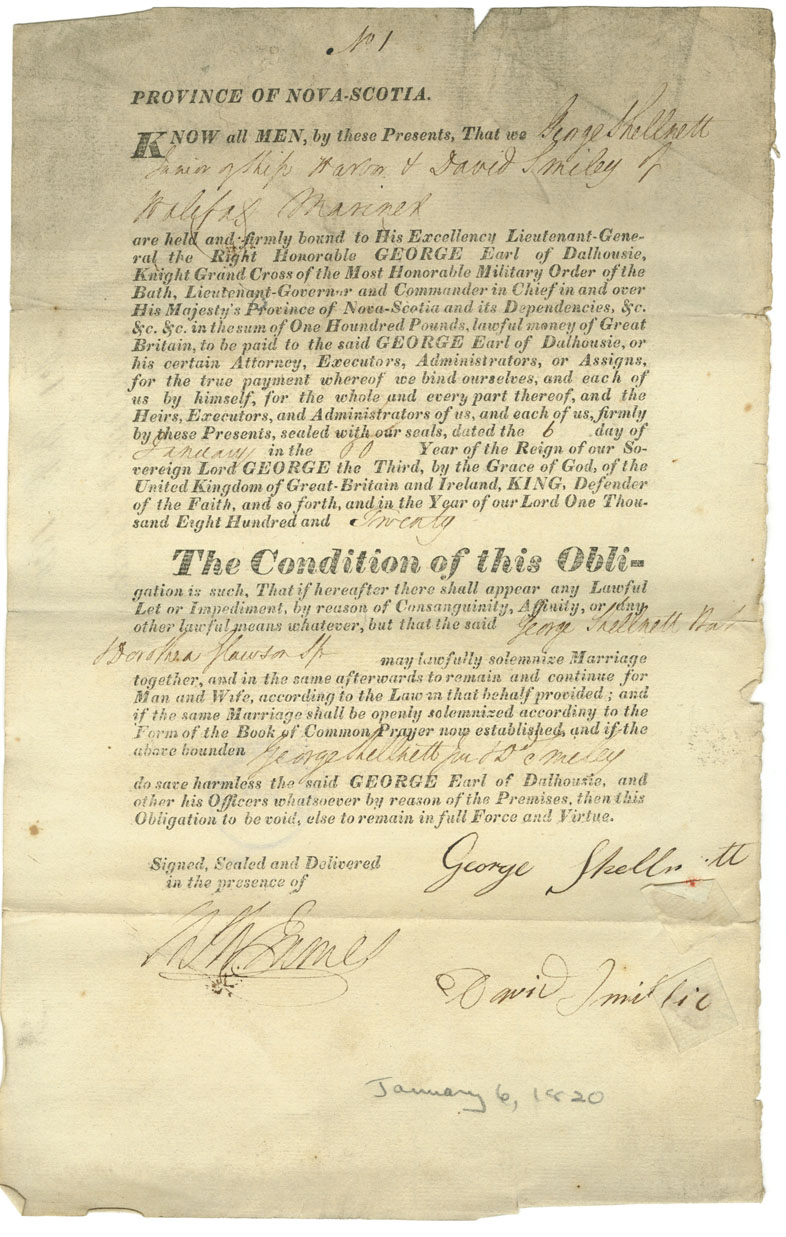 No 1
PROVINCE OF NOVA-SCOTIA.
KNOW all MEN, by these Presents, That we George Shellnett
Junior of Ship & David Smiley of
Halifax Mariner
are held and firmly bound to His Excellency Lieutenant-Gene-
ral the Right Honorable GEORGE Earl of Dalhousie,
Knight Grand Cross of the Most Honorable Military Order of the
Bath, Lieutenant-Governor and Commander in Chief in and over
His Majesty's Province of Nova-Scotia and its Dependencies, &c.
&c. &c. in the sum of One Houndred Pounds, lawful money of Great
Britain, to be paid to the said GEORGE Earl of Dalhousie, or
his certain Attorney, Executors, Administrators, or Assigns,
for the true payment whereof we bind ourselves, and each of
us by himself, for the whole and every part thereof, and the
Heirs, Executors, and Administrators of us, and each of us, firmly
by these Presents, sealed with our seals, dated the 6 day of
January in the 60 Year of the Reign of our So-
vereign Lord GEORGE the Third, by the Grace of God, of the
United Kingdom of Great-Britain and Ireland, KING, Defender
of the Faith, and so forth, and in the Year of our Lord One Thou-
sand Eight Hundred and Twenty
The Condition of this Obli-
gation is such, That if hereafter there shall appear any Lawful
Let or Impediment, by reason of Consanguinity, Affinity, or any
other lawful means whatever, but that the said George Shellnett Bat
& Dorothea Slawson Spr may lawfully solemnize Marriage
together, and in the same afterwards to remain and continue for
Man and Wife, according to the Law in that behalf provided; and
if the same Marriage shall be openly solemnized accordiny to the
Form of the Book of Common Prayer now established, and if the
above bounden George Shellnett jun & Dd Smiley
do save harmless the said GEORGE Earl of Dalhousie, and
other his Officers whatsoever by reason of the Premises, then this
Obligation to be void, else to remain in full Force and Virtue.
Signed, Sealed and Delivered
in the presence of
George Shellnett
David Smillie
January 6, 1820